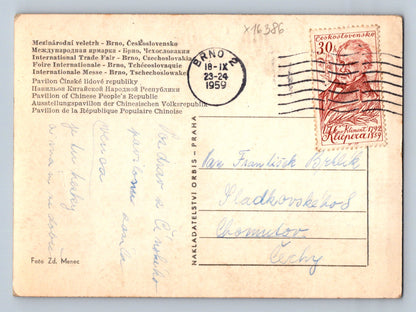 x16386
Mezinárodní veletrh - Brno, Československo
Международная ярмарка - Брно, Чехословакия
International Trade Fair - Brno, Czechoslovakia
Foire Internationale - Brno, Tchécoslovaquie
Internationale Messe - Brno, Tschechoslowakei
Pavilon Čínské lidové republiky
Павильон Китайской Народной Республики
Pavilion of Chinese People's Republic
Ausstellungspavillon der Chinesischen Volksrepublik
Pavillon de la République Populaire Chinoise
BRNO 2
18-IX
23-24
1959
Československo
30
Kliment 1792
Klicpera 1859
Pozdrav z Čínského
pavilonu
NAKLADATELSTVÍ ORBIS - PRAHA
Pan František
Sladkovského
Chomutov
Čechy
Foto Zd. Menec